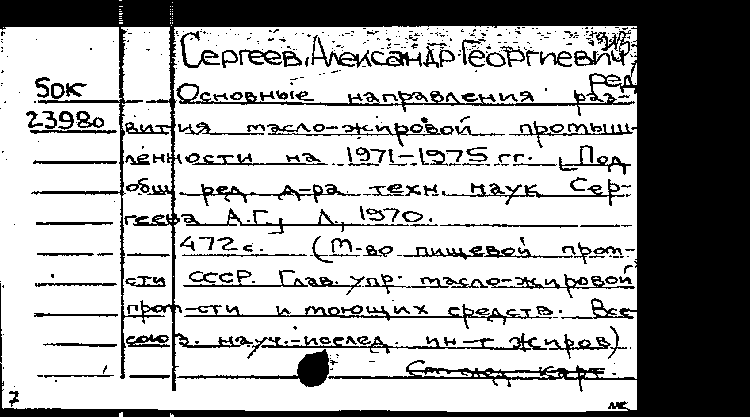 Сергеев, Александр Георгиевич,
ред.
50к Основные направления раз-
23980 вития масло-жировой промыш-
ленности на 1971-1975 гг. [Под
общ. ред. д-ра техн. наук Сер-
геева А.Г.], Л., 1970.
472 с. (М-во пищевой пром-
сти СССР. Глав. упр. масло-жировой
пром-сти и моющих средств. Все-
союз. науч.-исслед. ин-т жиров)
См. след. карт.
7